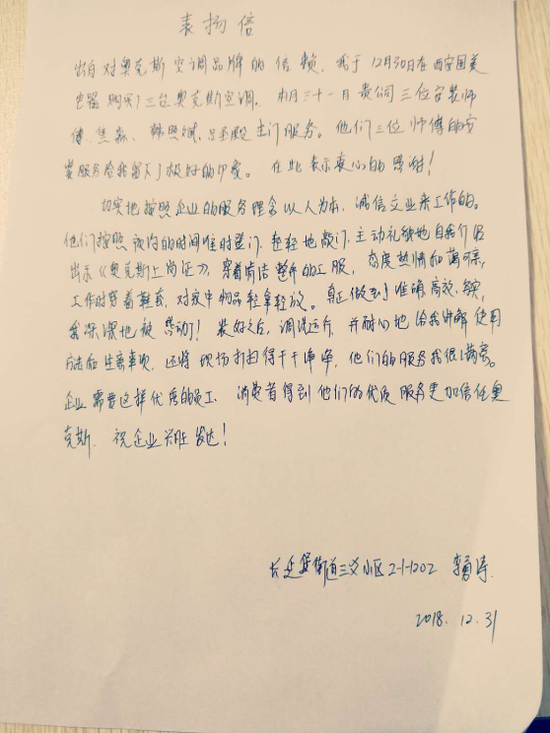 表扬信
出自对奥克斯空调品牌的信赖，我于12月30日在西安国美
电器购买了三台奥克斯空调，本月三十一日贵公司三位安装师
傅，焦磊、韩照斌、吕玉殿上门服务。他们三位师傅的安
装服务给我留下了极好的印象。在此表示衷心的感谢！
切实地按照企业的服务理念以人为本，诚信立业来工作的。
他们按照预约的时间准时登门，轻轻地敲门，主动礼貌地自我介绍
出示《奥克斯上岗证》，穿着简洁整齐的工服，态度热情和蔼可亲，
工作时穿着鞋套，对家中物品轻拿轻放。真正做到了准确高效
我深深地被感动了！装好之后，调试运行，并耐心地给我讲解使用
方法和注意事项，还将现场打扫得干干净净，他们的服务我很满意。
企业需要这样优秀的员工，消费者得到他们的优质服务更加信任奥
克斯。祝企业兴旺发达！
长延堡街道三爻小区2-1-1202 李
2018.12.31